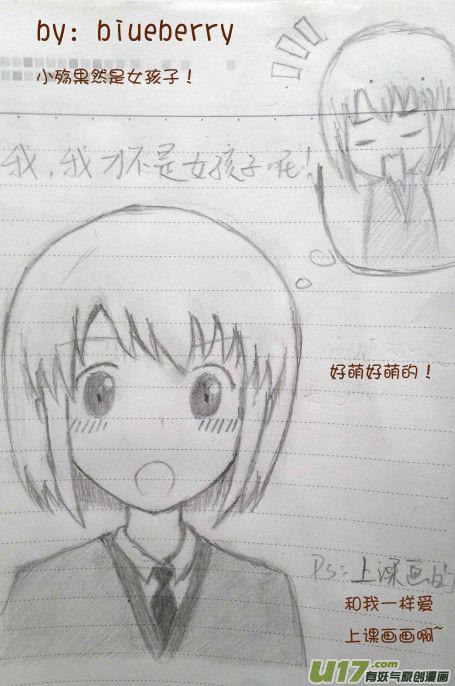 by: biueberry
小殇果然是女孩子！
我，我才不是女孩子呢！
好萌好萌的！
Ps：上课画的
和我一样爱
上课画画啊~
U17.com
有妖气原创漫画